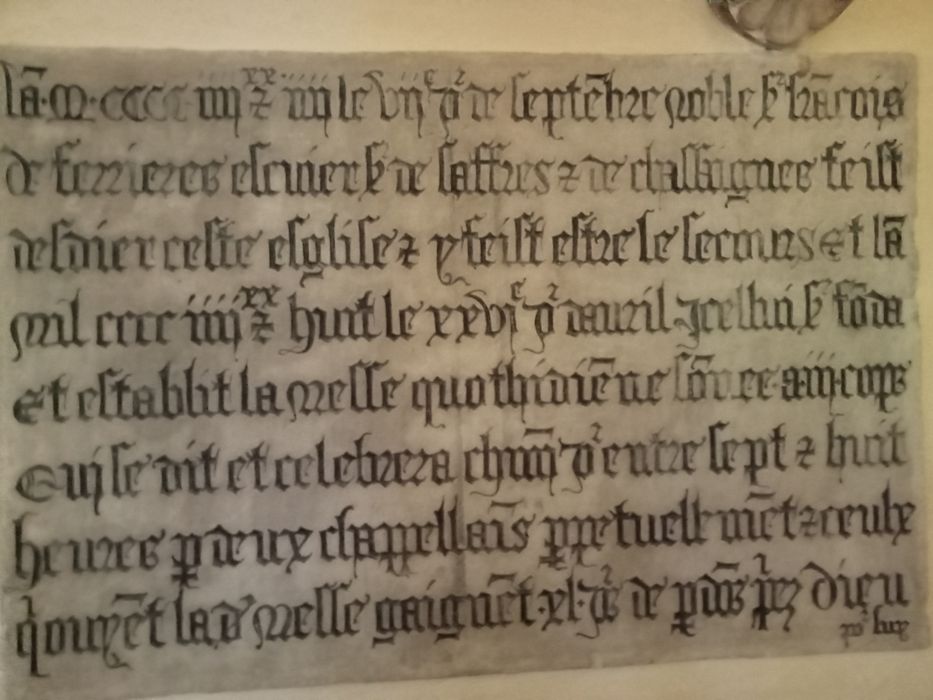 lā · m · cccc iiii xx z iiii le vii e jor de septēbre noble sr frācois
de ferrieres escuier sr de saffres z de chassaignes feist
desdier ceste esglise z y feist estre le secours Et lā
mil cccc iiii xx z huit le xxvi e jor dauril Jcellui sr fōda
Et establit la messe quothidiēne sōnee a · iii · cops
Qui se dit et celebrera chūn jor entre sept z huit
heures p deux chappellaīs ppetuell mēt z ceulx
q ouyēt lad messe gaignēt · xl · jrs de pdōs pez dieu
po eux